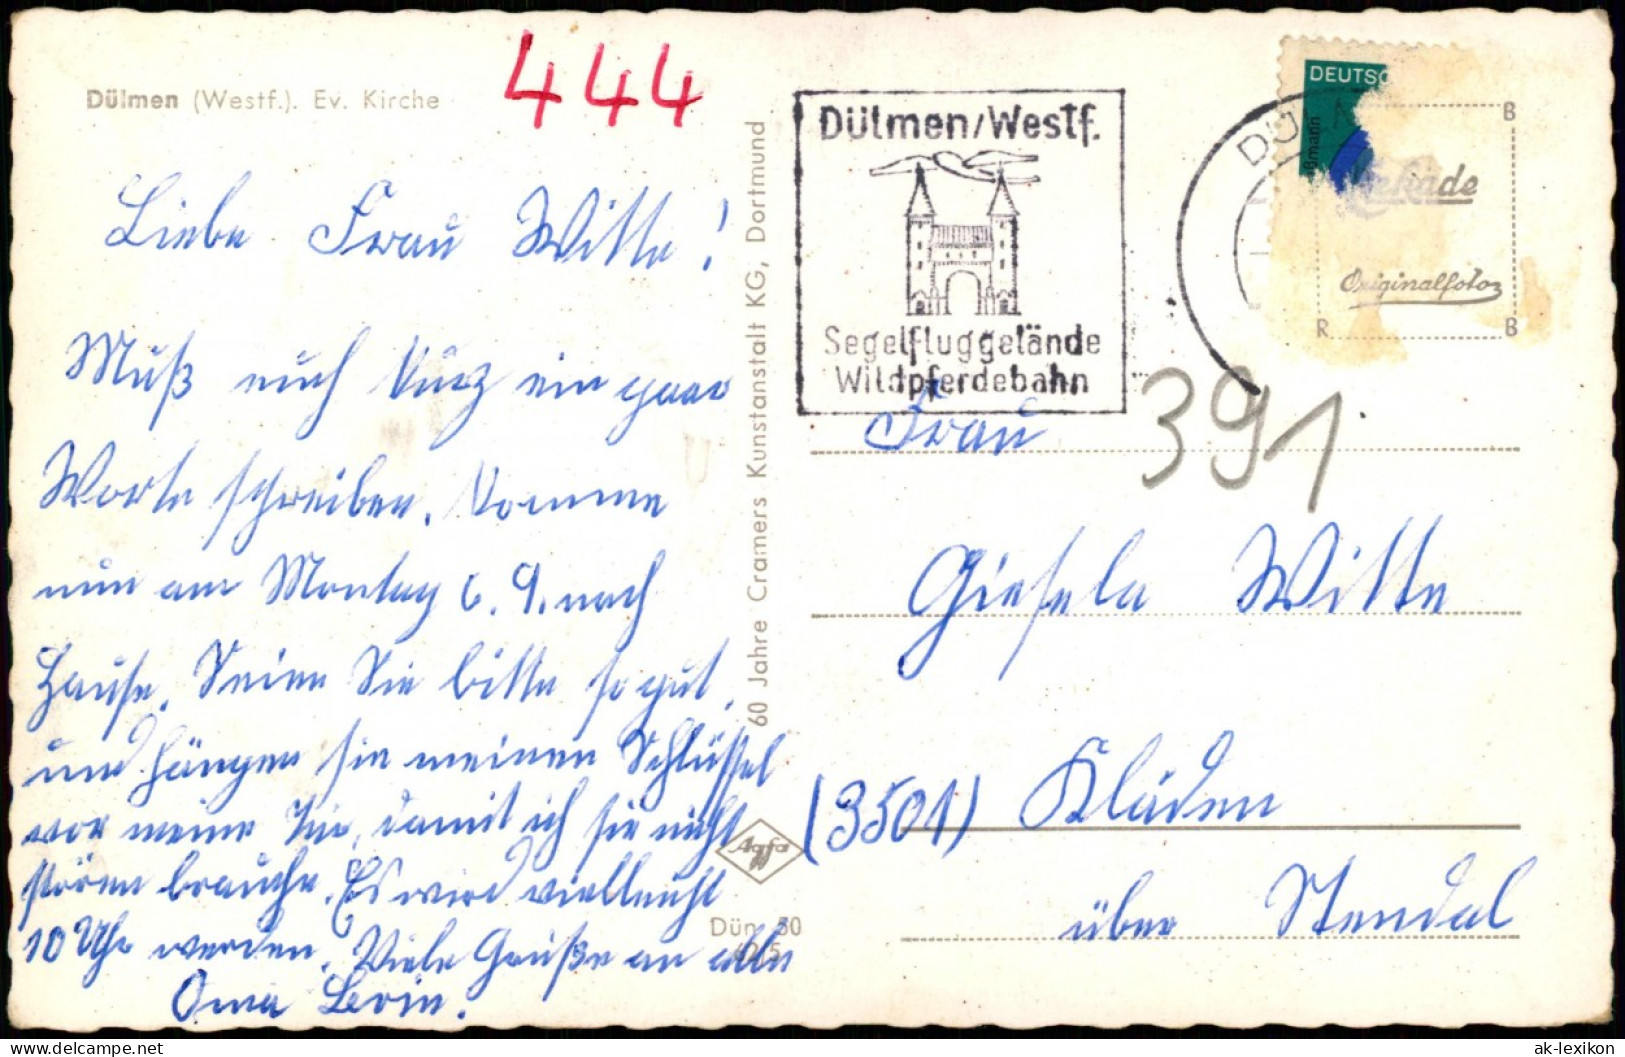 Dülmen (Westf.). Ev. Kirche
444
Liebe Frau Witte!
Muß auch kurz ein paar
Worte schreiben. Komme
nun am Montag 6. 9. nach
Hause. Seien Sie bitte so gut,
und hängen sie meinen Schlüssel
vor meine Tür, damit ich sie nicht
stören brauche. Es wird vielleicht
10 Uhr werden. Viele Grüße an alle
Oma
60 Jahre Cramers Kunstanstalt KG, Dortmund
Agfa
Dülmen/Westf.
Segelfluggelände
Wildpferdebahn
DEUTSC
B
Originalfoto
R B
391
Frau
Giesela Witte
(3501) Kläden
über Stendal
www.delcampe.net
ak-lexikon